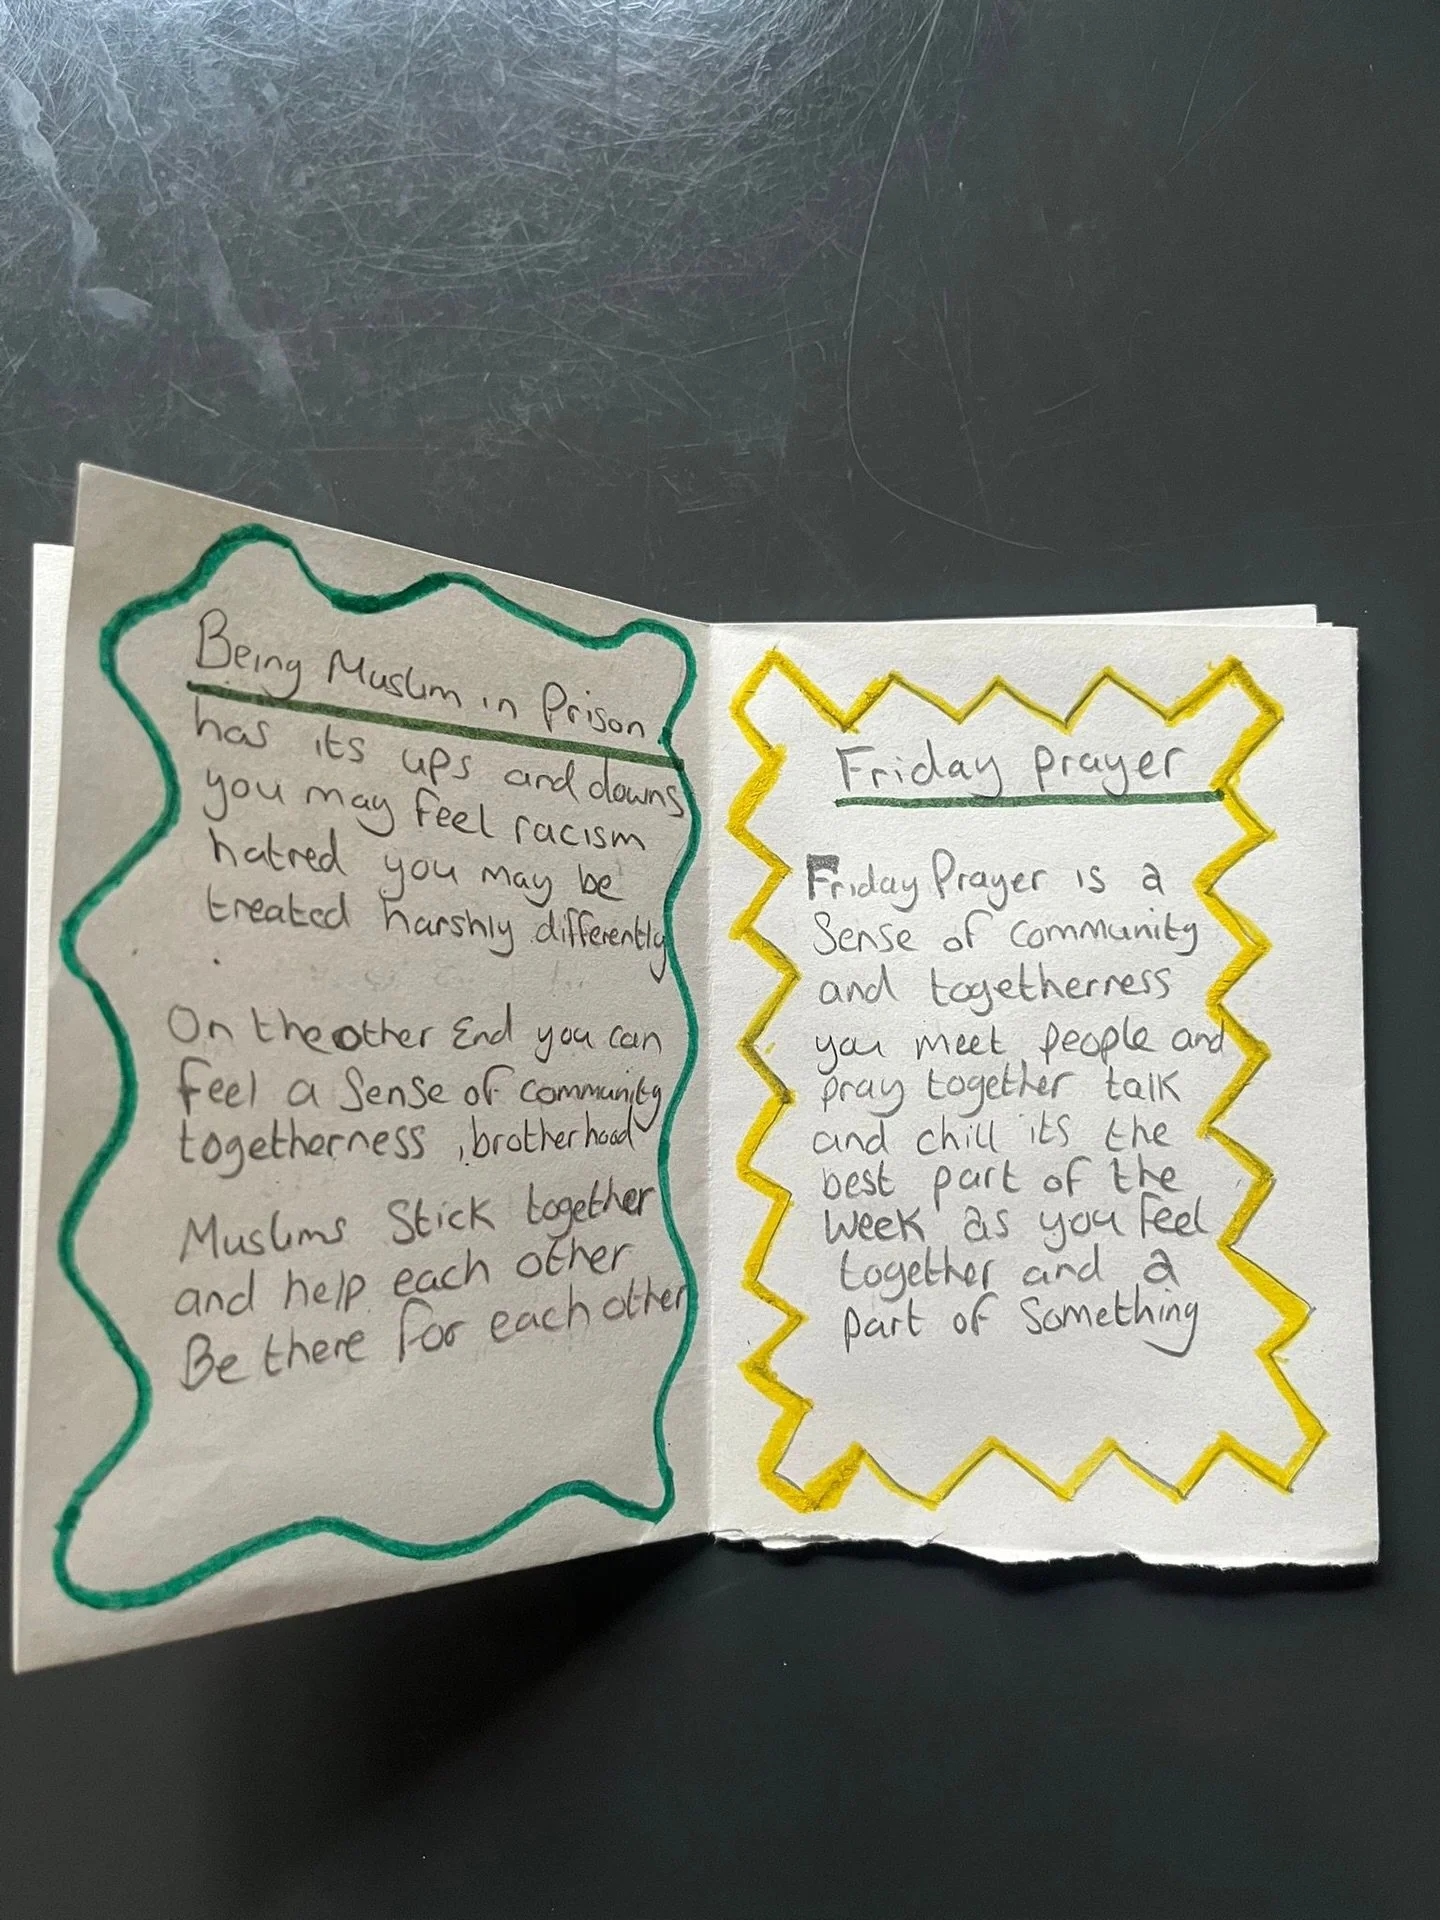 Being Muslim in Prison
has its ups and downs
you may feel racism
hatred you may be
treated harshly differently
On the other End you can
feel a Sense of community
togetherness , brotherhood
Muslims Stick together
and help each other
Be there for each other
Friday prayer
Friday Prayer is a
Sense of community
and togetherness
you meet people and
pray together talk
and chill its the
best part of the
week as you feel
together and a
part of Something